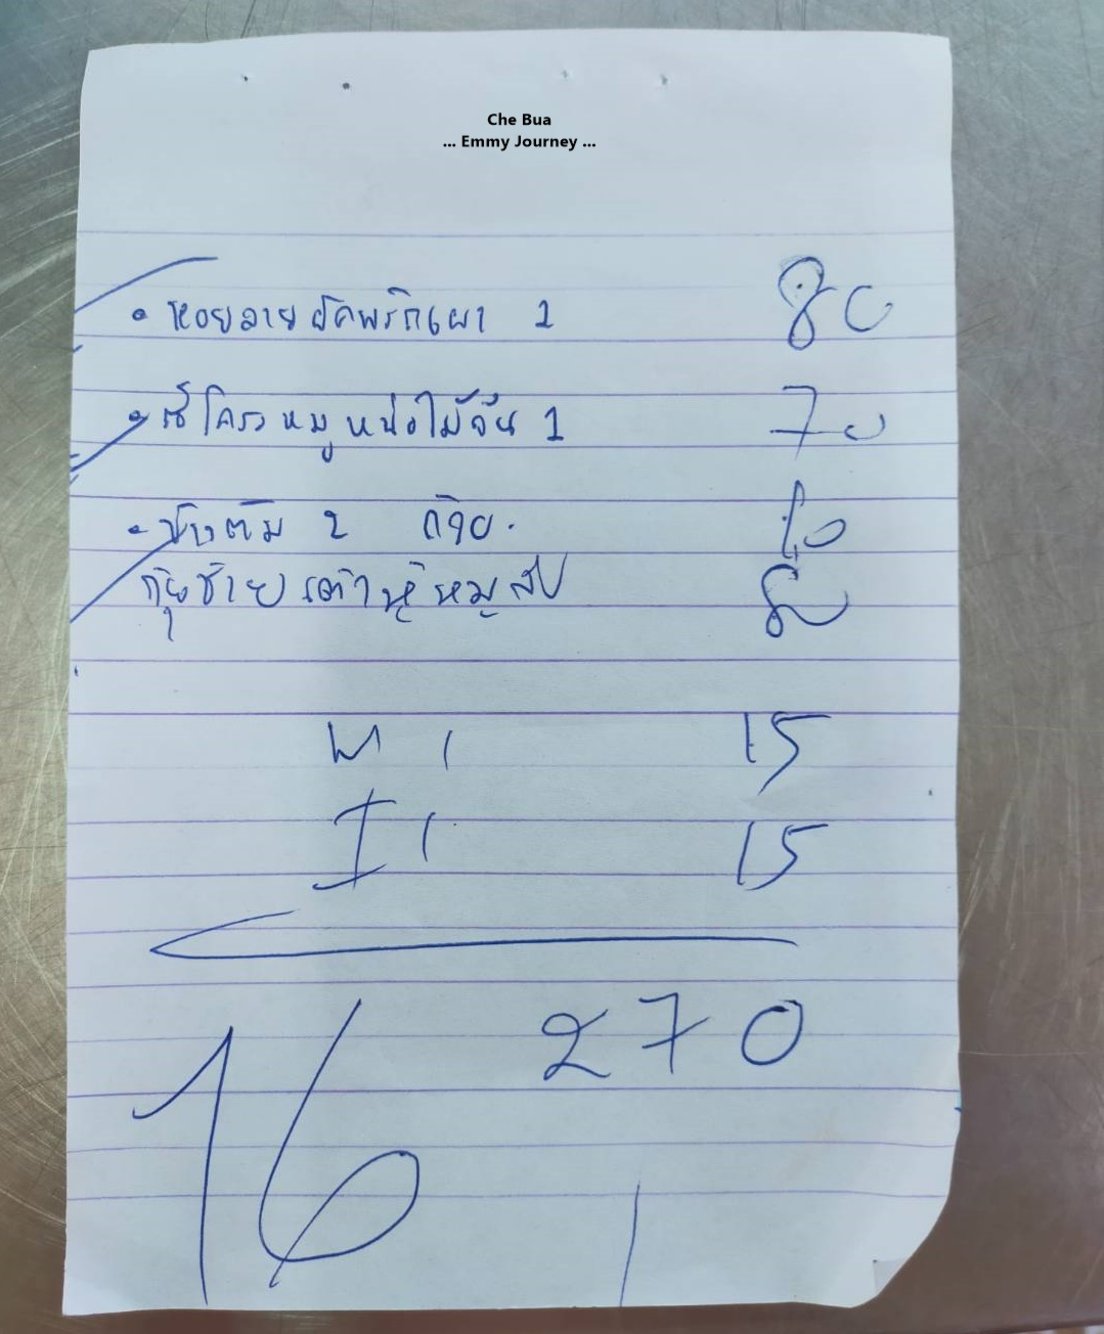 Che Bua
... Emmy Journey ...
• หอยลายผัดพริกเผา 1 80
• ซี่โครงหมูหน่อไม้จีน 1 70
• ข้าวต้ม 2 ถ้วย. 10
กุยช่ายเต้าหู้หมูสับ 80
พ 1 15
I 1 15
270
16